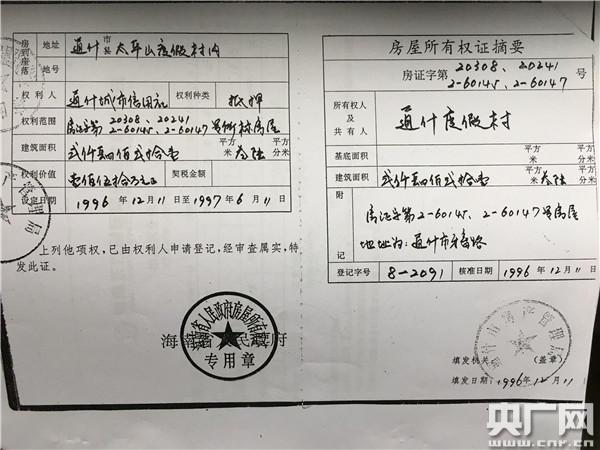 房屋座落
地址
通什市县太平山度假村内
地号
权利人
通什城市信用社
权利种类
抵押
权利范围
房证字第20308、20241
2-60145、2-60147号所标房屋
建筑面积
贰仟肆佰贰拾壹
平方米
叁陆
平方分米
权利价值
壹佰伍拾万元正
契税金额
设定日期
1996年12月11日至1997年6月11日
上列他项权,已由权利人申请登记,经审查属实,特
发此证。
海南省人民政府
海南省人民政府房屋所有权证
专用章
房屋所有权证摘要
房证字第20308、20241
2-60145、2-60147号
所有权人及共有人
通什度假村
基底面积
平方米
平方分米
建筑面积
贰仟肆佰贰拾壹
平方米
叁陆
平方分米
附记
房证字第2-60145、2-60147号房屋
地址为:通什市
登记字号
8-2091
核准日期
1996年12月11日
通什市房产管理局
填发机关
(盖章)
填发日期:1996年12月11
央广网
www.cnr.cn